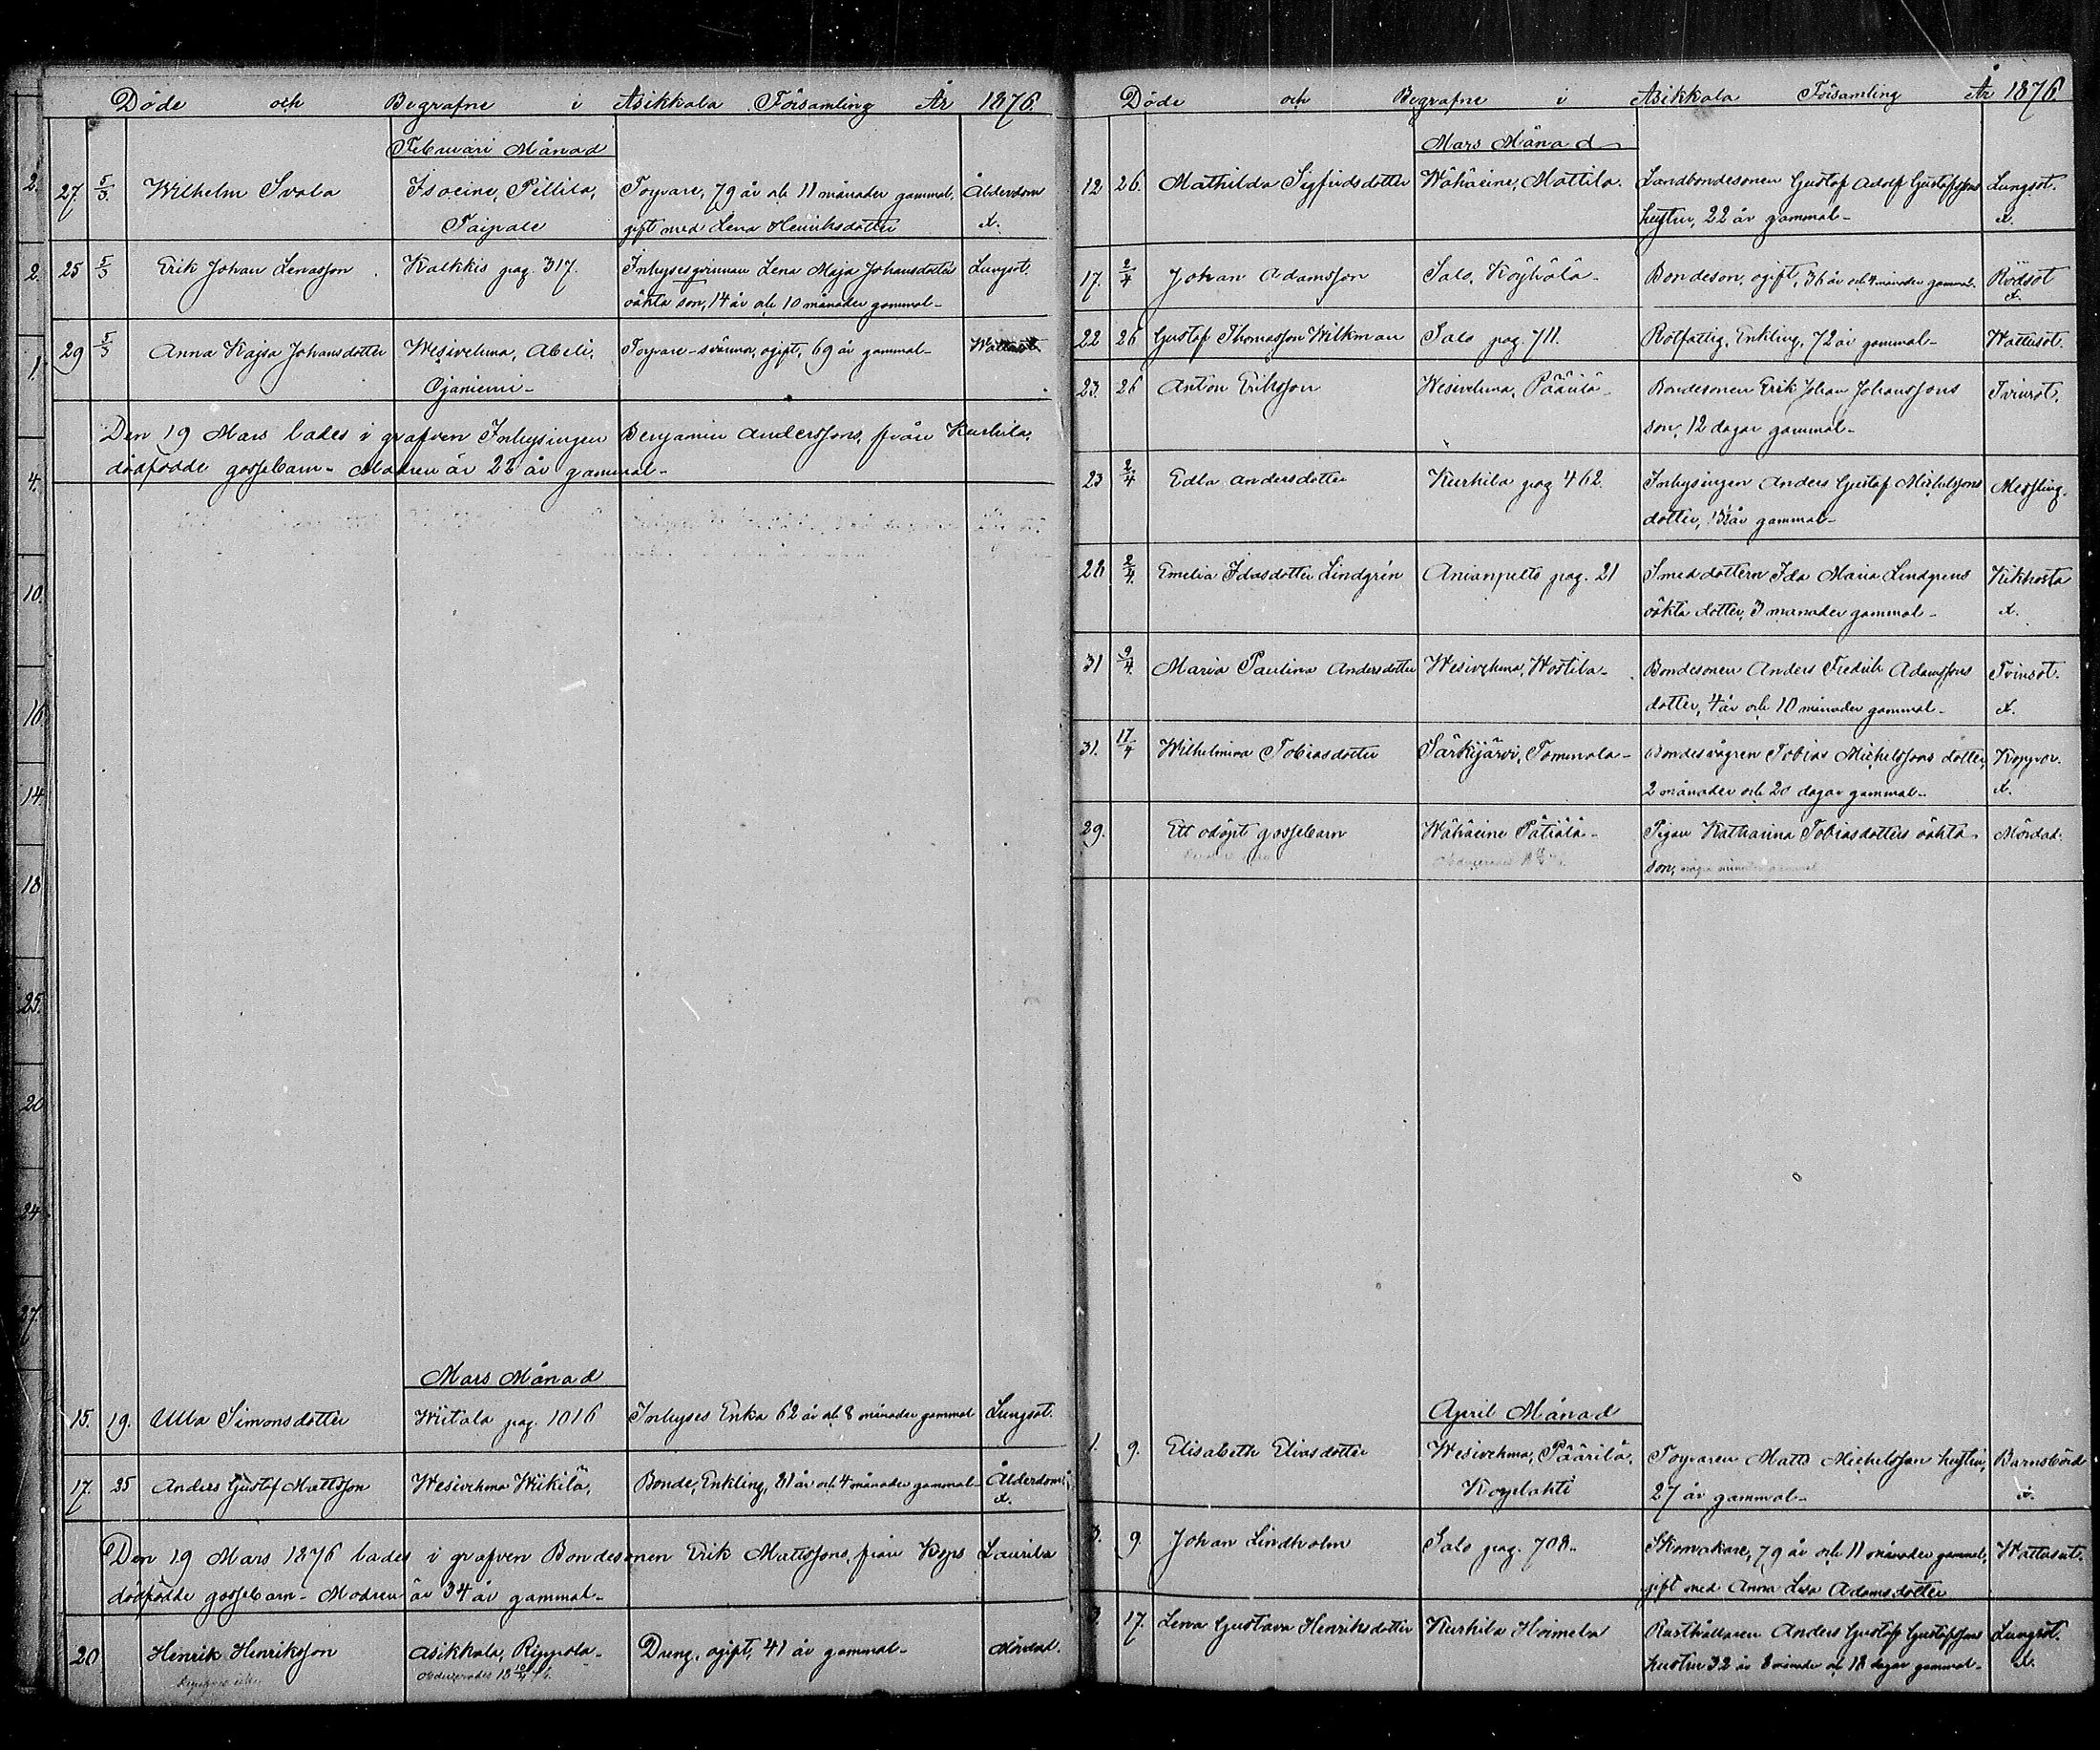 Döde och Begrafne i Asikkala Församling År 1876.
Februari Månad
27. 5/3. Wilhelm Svala Isoeine, Pellilä, Torpare, 79 år och 11 månader gammal, Ålderdom
Taipale gift med Lena Henriksdotter d.
25 5/3 Erik Johan Lenasson Kalkkis pag. 317. Inhysesqvinnan Lena Maja Johansdotters Lungsot.
oäkta son, 14 år och 10 månader gammal-
29 5/3 Anna Kajsa Johansdotter Wesivehma, Abeli, Torpare-svärmor, ogift, 69 år gammal- Wattusot
Ojaniemi-
Den 19 Mars lades i grafven Inhysingen Benjamin Anderssons, från Kurhila,
dödfödde gossebarn- Modren är 22 år gammal-
Mars Månad
15. 19. Ulla Simonsdotter Wiitala pag. 1016 Inhyses Enka 62 år och 8 månader gammal Lungsot.
17. 25 Anders Gustaf Mattsson Wesivehma Wiikilä, Bonde, Enkling, 81 år och 4 månader gammal- Ålderdom
d.
Den 19 Mars 1876 lades i grafven Bondesonen Erik Mattssons, från Kops Laurila
dödfödde gossebarn- Modren är 34 år gammal-
20 Henrik Henriksson Asikkala, Reppola- Dreng, ogift, 41 år gammal- Mördad.
Döde och Begrafne i Asikkala Församling År 1876.
Mars Månad
12. 26. Mathilda Sigfridsdotter Wähäeine, Mattila. Landbondesonen Gustaf Adolf Gustafssons Lungsot.
hustru, 22 år gammal- d.
17. 2/4 Johan Adamsson Salo, Köyhölä- Bondeson, ogift, 36 år och 4 månader gammal- Rödsot
d.
22 26 Gustaf Thomasson Wilkman Salo pag. 711. Rotfattig, Enkling, 72 år gammal- Wattusot.
23. 26 Anton Eriksson Wesivehma, Päärilä- Bondesonen Erik Johan Johanssons Tvinsot.
son, 12 dagar gammal-
23 2/4 Edla Andersdotter Kurhila pag 462. Inhysingen Anders Gustaf Michelssons Messling.
dotter, år gammal-
28 2/4. Emelia Idasdotter Lindgrén Anianpelto pag. 21 Smeddottern Ida Maria Lindgrens Kikhosta
oäkta dotter, 3 månader gammal- d.
31 9/4. Maria Paulina Andersdotter Wesivehma, Wostila- Bondesonen Anders Fredrik Adamssons Tvinsot.
dotter, 4 år och 10 månader gammal- d.
31. 17/4 Wilhelmina Tobiasdotter Särkijärvi, Tommola- Bondesvågren Tobias Michelssons dotter, Koppor.
2 månader och 20 dagar gammal- d.
29. Ett odöpt gossebarn Wähäeine Pätiälä- Pigan Katharina Tobiasdotters oäkta Mördad.
son, några minuter gammal
April Månad
1. 9. Elisabeth Eliasdotter Wesivehma, Päärilä, Torparen Matts Michelsson hustru, Barnsbörd
Koplahti 27 år gammal- d.
3. 9. Johan Lindholm Salo pag. 708. Skomakare, 79 år och 11 månader gammal, Wattusot.
gift med Anna Lisa Adamsdotter
17. Lena Gustava Henriksdotter Kurhila Hoimela Rusthållaren Anders Gustaf Gustafssons Lungsot.
hustru 32 år 8 månader och 18 dagar gammal- d.
2.
2.
1.
4.
10.
16.
14.
18
25.
20
24
27